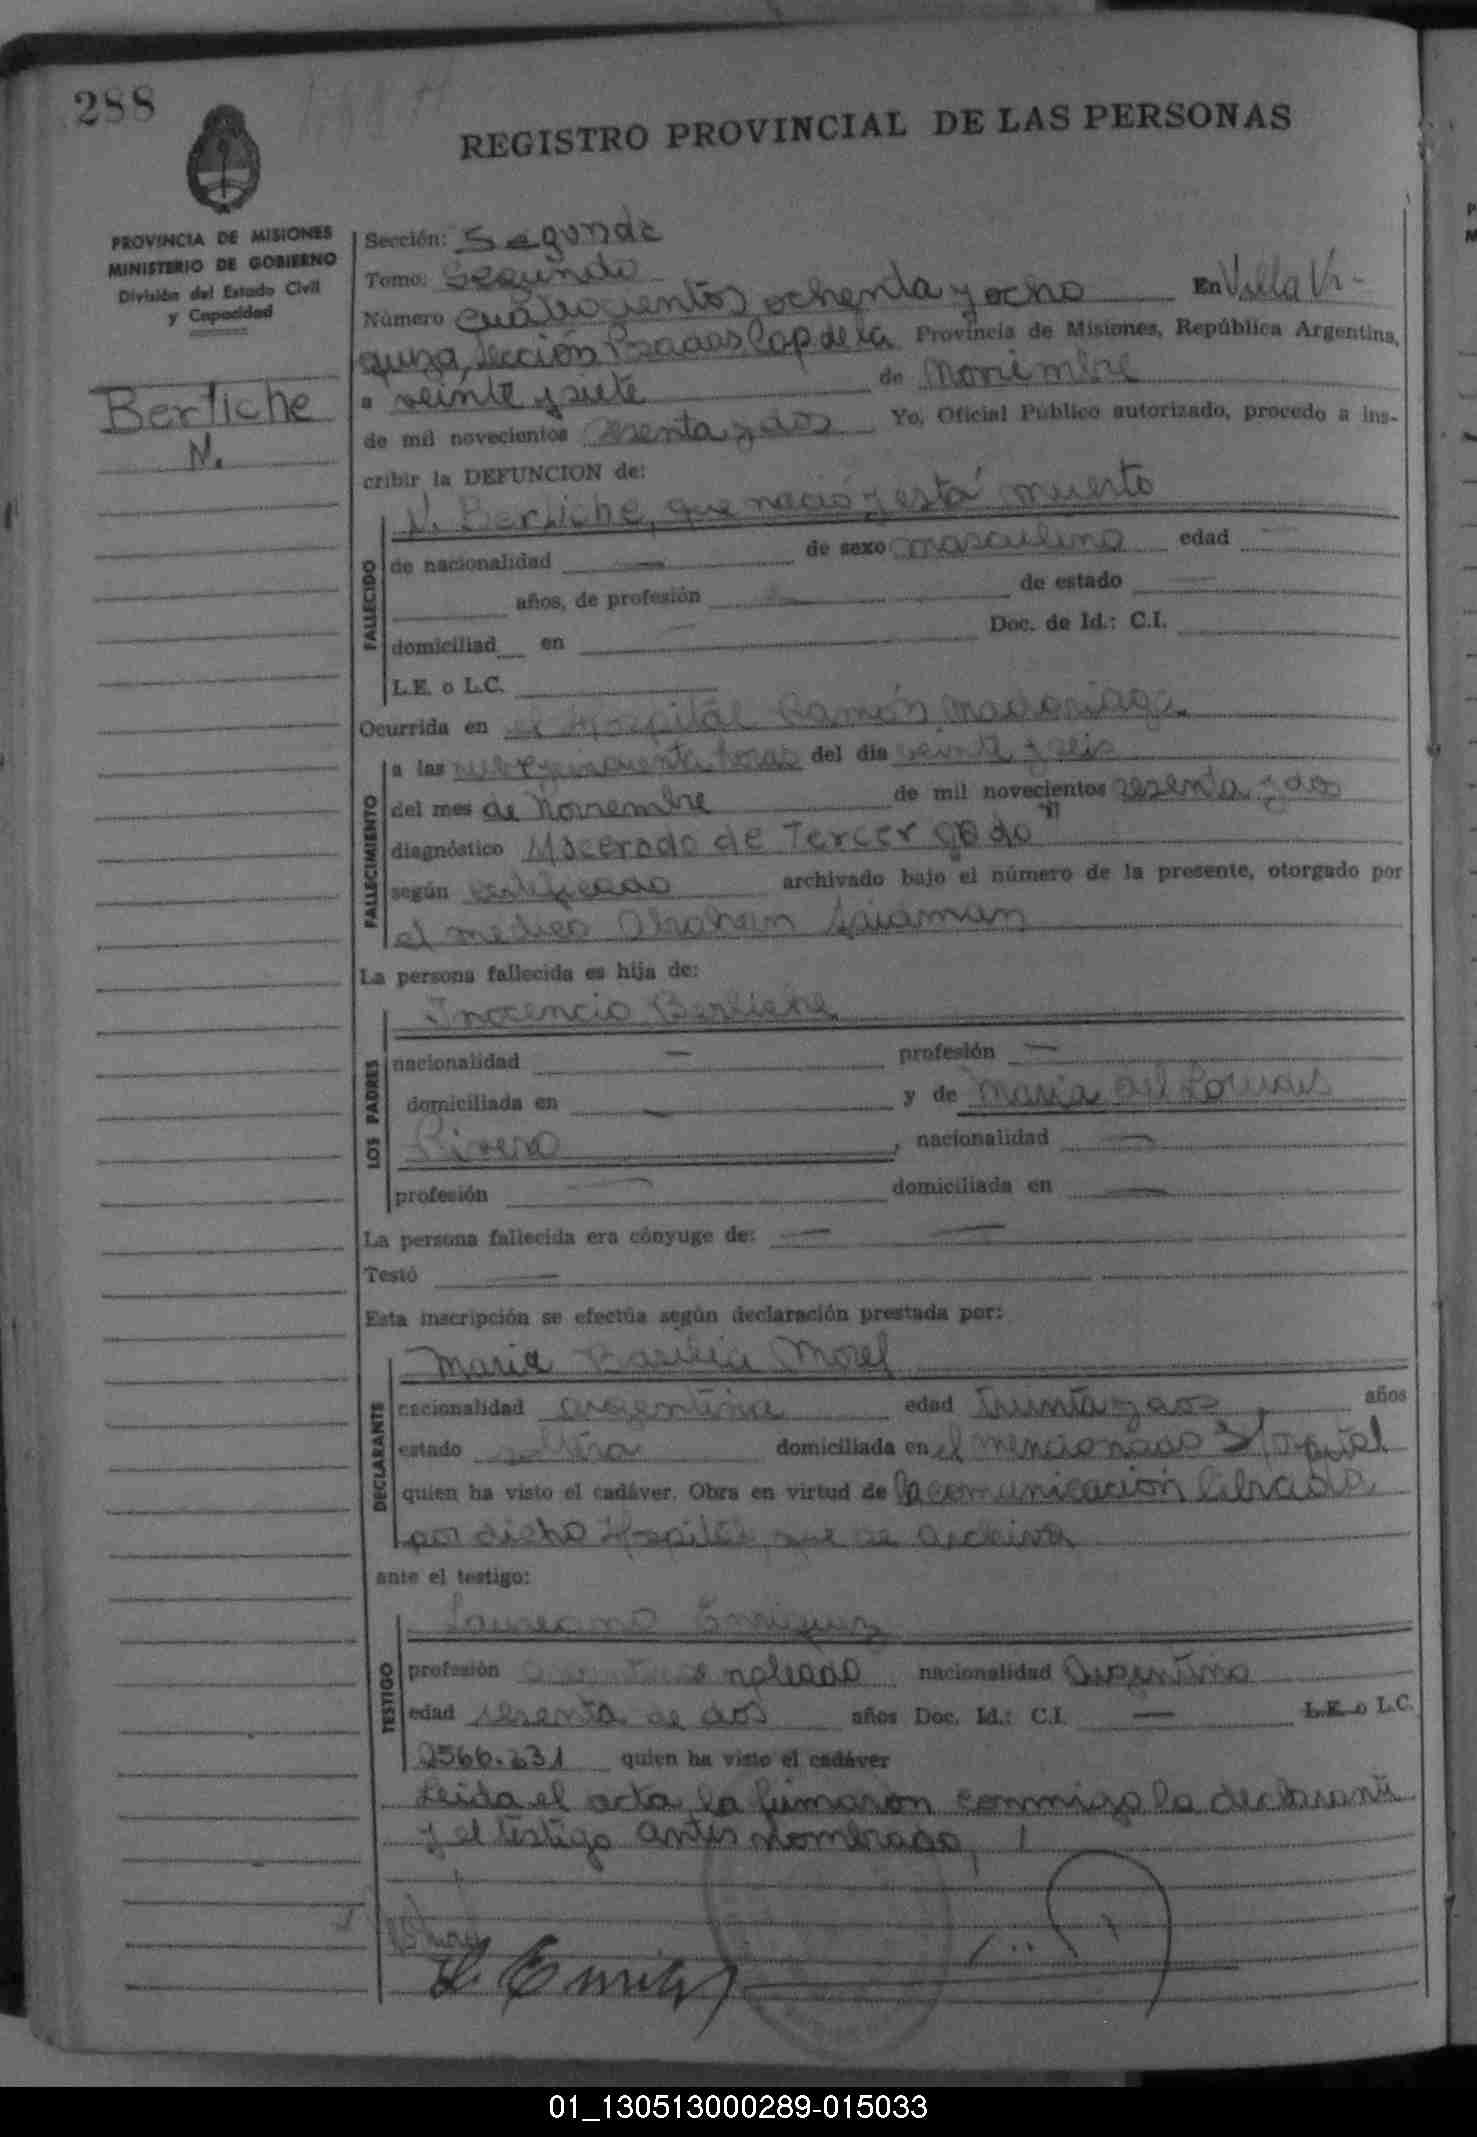 288
REGISTRO PROVINCIAL DE LAS PERSONAS
PROVINCIA DE MISIONES
MINISTERIO DE GOBIERNO
División del Estado Civil
y Capacidad
Berliche
N.
Sección: Segunda
Tomo: Segundo
Número cuatrocientos ochenta y ocho En Villa Vi-
Sección Cap. de la Provincia de Misiones, República Argentina,
a veinte y siete de Noviembre
de mil novecientos sesenta y dos Yo, Oficial Público autorizado, procedo a ins-
cribir la DEFUNCION de:
N. Berliche, que nació y está muerto
FALLECIDO
de nacionalidad — de sexo masculino edad —
años, de profesión — de estado —
domiciliad en — Doc. de Id.: C.I.
L.E. o L.C.
Ocurrida en el Hospital Ramón Madariaga
FALLECIMIENTO
a las y cincuenta horas del dia veinte y seis
del mes de Noviembre de mil novecientos sesenta y dos
diagnóstico Macerado de Tercer
según certificado archivado bajo el número de la presente, otorgado por
el medico Abraham
La persona fallecida es hija de:
LOS PADRES
Inocencio Berliche
nacionalidad — profesión —
domiciliada en — y de Maria del Lourdes
Rivero, nacionalidad —
profesión — domiciliada en —
La persona fallecida era cónyuge de: — —
Testó —
Esta inscripción se efectúa según declaración prestada por:
DECLARANTE
Maria Basilia Morel
nacionalidad argentina edad treinta y dos años
estado soltera domiciliada en el mencionado Hospital
quien ha visto el cadáver. Obra en virtud de la comunicación librada
por dicho Hospital, que se archiva
ante el testigo:
TESTIGO
Laureano Enriquez
profesión nacionalidad Argentino
edad sesenta de dos años Doc. Id.: C.I. — L.E. o L.C.
2566.231 quien ha visto el cadáver
Leida el acta, la firmaron conmigo la declarante
y el testigo antes nombrado,
01_130513000289-015033